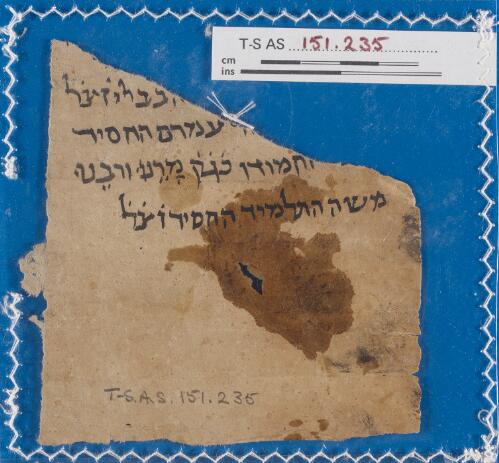 T-S AS 151.235
cm
ins
הבבלי זצל
עמרם החסיד
וחמודו כגק מרנו ורבנו
משה התלמיד החסיד זצל
T-S.A.S. 151.235